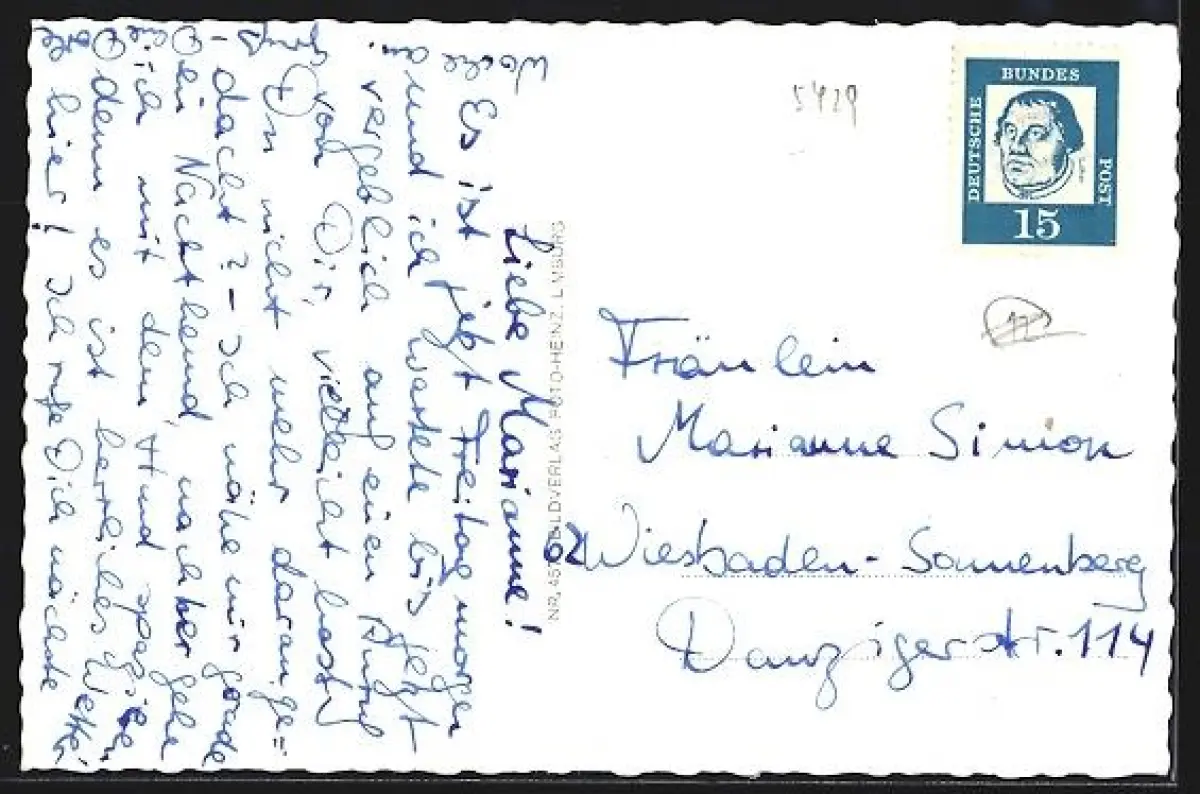 Liebe Marianne!
Es ist jetzt Freitag morgen
und ich wartete bis jetzt
vergeblich auf einen Anruf
von Dir, vielleicht hast
Du nicht mehr daran ge=
dacht? – Ich nähe mir gerade
ein Nachthemd, nachher gehe
ich mit dem Hund spazieren
denn es ist herrliches Wetter
hier! Ich rufe Dich nächste
Woche an.
Gruß
Deine
NR. BILDVERLAG FOTO-HEINZ, LIMBURG
5429
DEUTSCHE BUNDES POST
15
Fräulein
Marianne Simon
62 Wiesbaden-Sonnenberg
Danzigerstr. 114